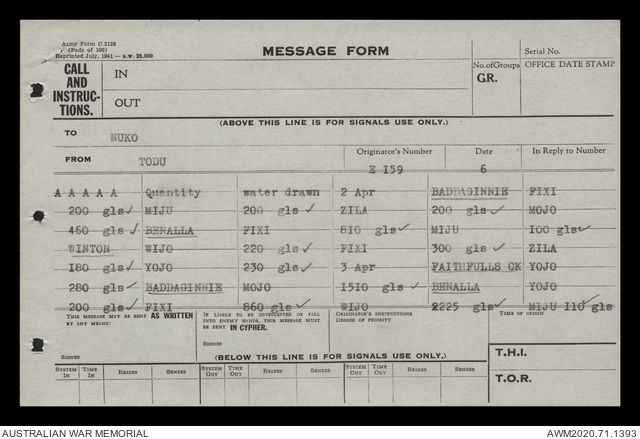 Army Form C.2128
(Pads of 100)
Reprinted July, 1941 — s.w. 25,000
MESSAGE FORM
Serial No.
CALL AND INSTRUC-TIONS.
IN
OUT
No. of Groups
GR.
OFFICE DATE STAMP
(ABOVE THIS LINE IS FOR SIGNALS USE ONLY.)
TO NUKO
FROM TODU
Originator's Number E 159
Date 6
In Reply to Number
A A A A A Quantity water drawn 2 Apr BADDAGINNIE FIXI
200 gls MIJU 200 gls ZILA 200 gls MOJO
460 gls BENALLA FIXI 810 gls MIJU 100 gls
WINTON WIJO 220 gls FIXI 300 gls ZILA
180 gls YOJO 230 gls 3 Apr FAITHFULLS CK YOJO
280 gls BADDAGINNIE MOJO 1510 gls BENALLA YOJO
200 gls FIXI 860 gls WIJO 2225 gls MIJU 110 gls
THIS MESSAGE MAY BE SENT AS WRITTEN BY ANY MEANS.
IF LIABLE TO BE INTERCEPTED OR FALL INTO ENEMY HANDS, THIS MESSAGE MUST BE SENT IN CYPHER.
ORIGINATOR'S INSTRUCTIONS
DEGREE OF PRIORITY
TIME OF ORIGIN
SIGNED
SIGNED
(BELOW THIS LINE IS FOR SIGNALS USE ONLY.)
T.H.I.
T.O.R.
SYSTEM IN TIME IN READER SENDER SYSTEM OUT TIME OUT READER SENDER SYSTEM OUT TIME OUT READER SENDER
AUSTRALIAN WAR MEMORIAL
AWM2020.71.1393